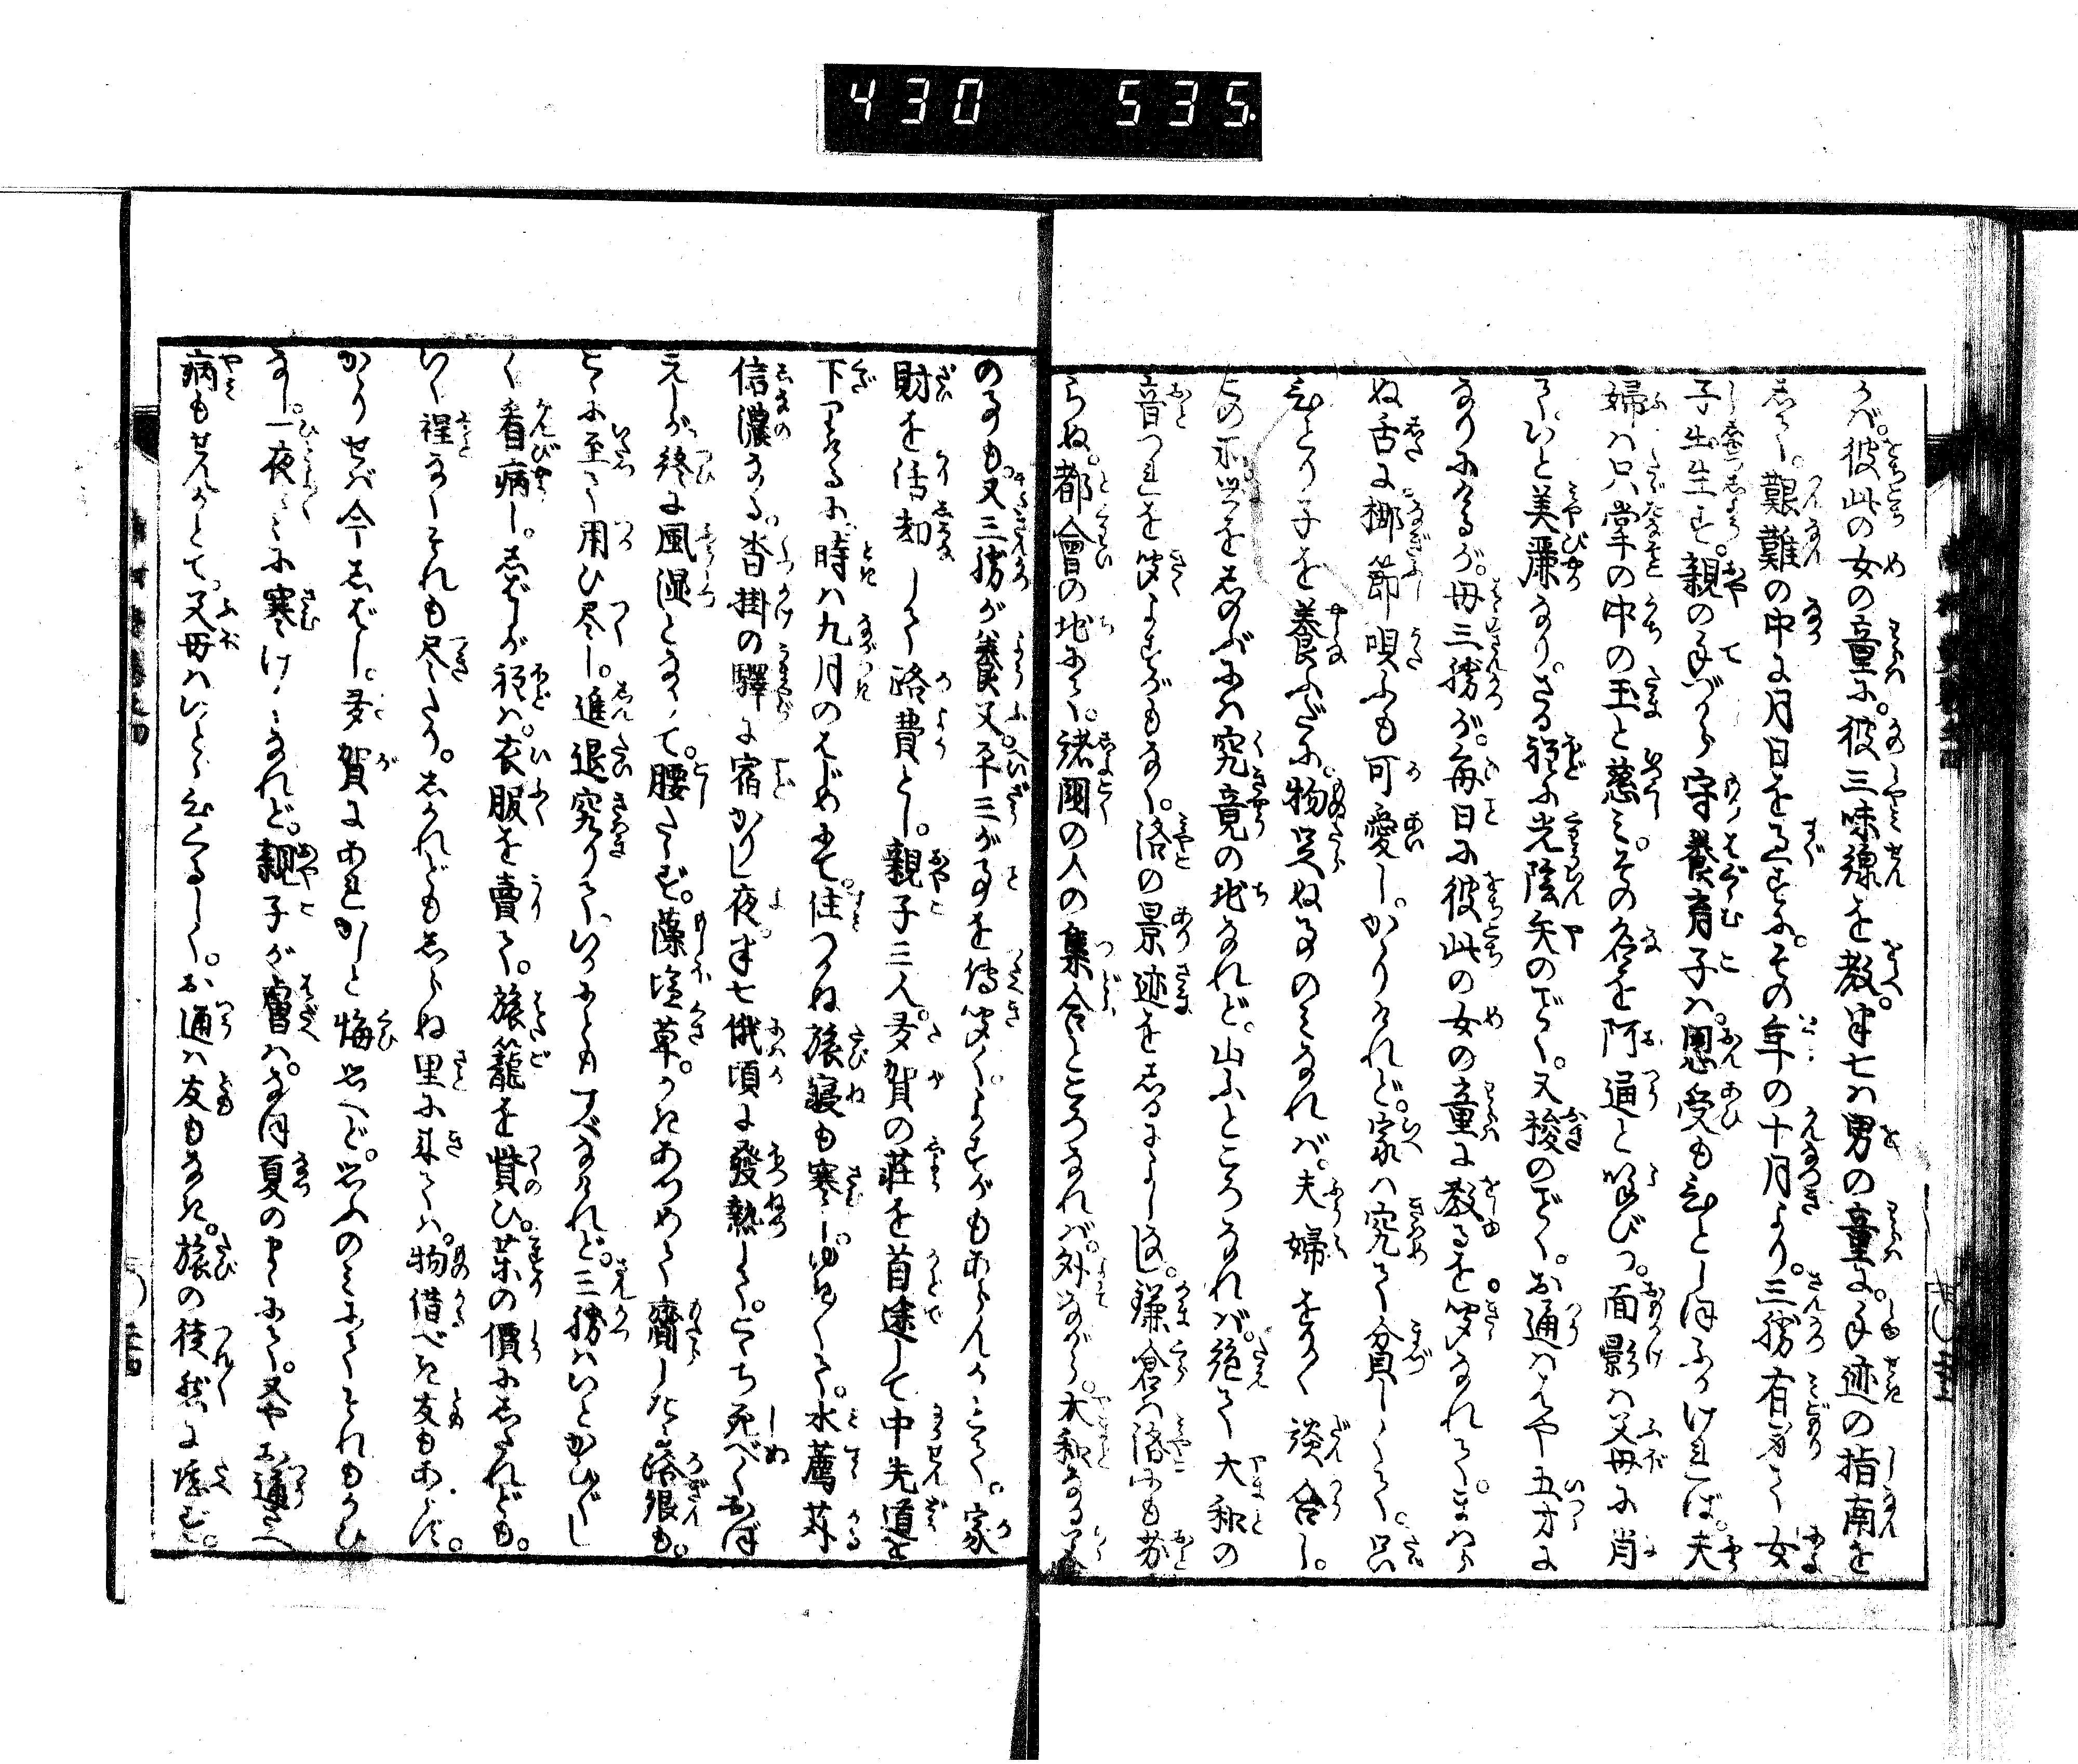 430 535.
うへ。彼此の女の童に。彼三味線を教。半七は男の童に。手迹の指南を
して。艱難の中に月日を過すに。その年の十月より。三勝有身て女
子出生す。親の手づから守養育子は。恩愛もひとしほふかければ。夫
婦は只掌の中の玉と慈み。その名を阿通と喚びつ。面影は父母に肖
て。いと美麗なり。さる程に光陰矢のごとく。又梭のごとく。お通ははや五才に
なりにけるが。母三勝が。毎日に彼此の女の童に教るを聞なれて。まはら
ぬ舌に梛節唄ふも可愛し。かゝりけれど。家は究て貧しくて。只
ひとり子を養ふだに。物足ぬ事のみなれば。夫婦をさ〳〵談合し。
この所世をしのぶには究竟の地なれど。山ふところなれば。絶て大和の
音つれを聞よすがもなく。洛の景迹をしるによしなし。鎌倉は洛にも劣
らぬ。都會の地にて。諸國の人の集合ところなれば。外ながら。大和なる父
の事も。又三勝が養父。平三が事を傳聞く。よすがもあらんかとて。家
財を沽却して路費とし。親子三人。多賀の莊を首途して中先道を
下りけるに。時は九月のはじめにて。住つかぬ旅寝も寒し。ゆき〳〵て。水薦苅
信濃なる。沓掛の驛に宿かりし夜。半七俄頃に發熱して。うち死べくおぼ
えしが。終に風湿となりて。腰たゝず。藻塩草。かきあつめて齎したる路銀も。
こゝに至て用ひ尽し。進退究りて。いかにともすべなけれど。三勝はいとかひ〴〵し
く看病し。しばしが程は。衣服を賣て。旅籠を賃ひ。薬の價にしたれども。
いく程なくそれも尽たり。しかれどもしらぬ里に来ては。物借べき友もあらず。
かゝりせば今しばし。多賀にあれかしと悔思へど。思ふのみにてそれもかひ
なし。一夜〳〵に寒けくなれど。親子が膚は。なほ夏のまゝにて。又やお通さへ
病もせんかとて。父母はいとゞ心くるしく。お通は友もなき。旅の徒然に堪ず。